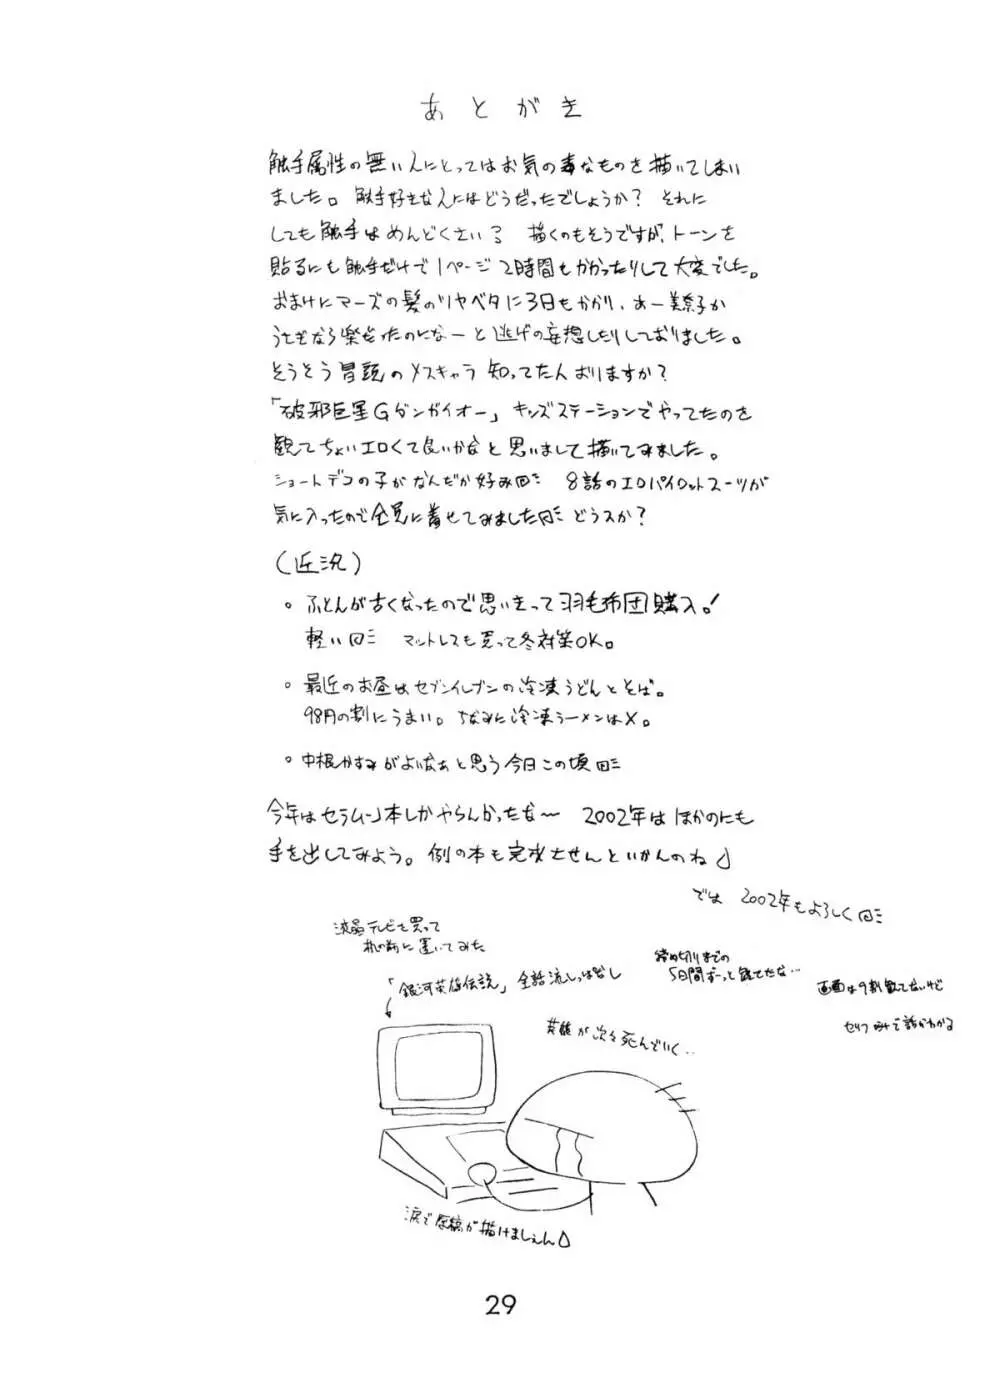 あとがき
触手属性の無い人にとってはお気の毒なものを描いてしまい
ました。触手好きな人にはどうだったでしょうか？ それに
しても触手はめんどくさい〜 描くのもそうですが、トーンを
貼るにも触手だけで1ページ2時間もかかったりして大変でした。
おまけにマーズの髪のツヤベタに3日もかかり、あー美奈子か
うさぎなら楽だったのになーと逃げの妄想したりしておりました。
そうそう冒頭のメスキャラ知ってた人おりますか？
「破邪巨星Gダンガイオー」キッズステーションでやってたのを
観てちょいエロくて良いかなと思いまして描いてみました。
ショートデコの子がなんだか好み 8話のエロパイロットスーツが
気に入ったので全員に着せてみました どうスか？
（近況）
。ふとんが古くなったので思いきって羽毛布団購入。！
軽い マットレスも買って冬対策OK。
。最近のお昼はセブンイレブンの冷凍うどんとそば。
98円の割にうまい。ちなみに冷凍ラーメンは×。
。中根かすみがよいなぁと思う今日この頃
今年はセラムーン本しかやらんかったな〜 2002年はほかのにも
手を出してみよう。例の本も完成させんといかんのね
では 2002年もよろしく
液晶テレビを買って
机の前に置いてみた
「銀河英雄伝説」全話流しっぱなし
締め切りまでの
5日間ずーっと観てたな…
画面は9割観てないけど
セリフだけで話がわかる
英雄が次々死んでいく…
涙で原稿が描けましぇん
29